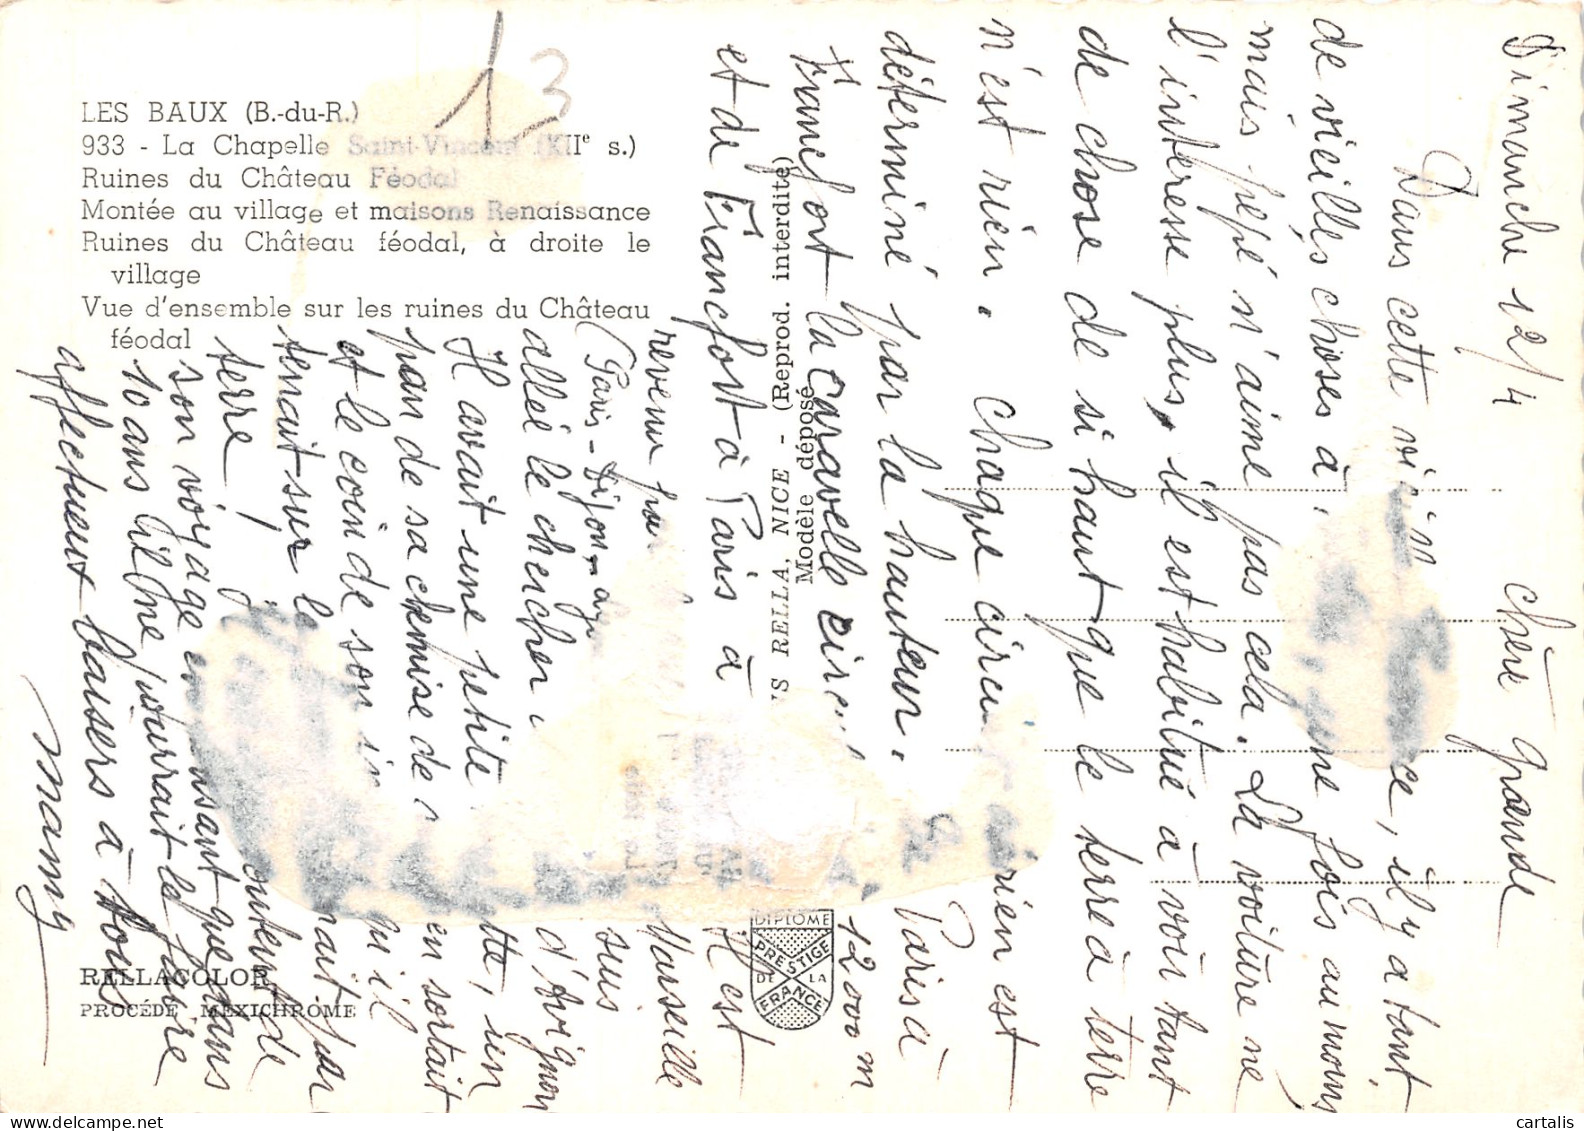 LES BAUX (B.-du-R.)
933 - La Chapelle Saint-Vincent (XIIe s.)
Ruines du Château Féodal
Montée au village et maisons Renaissance
Ruines du Château féodal, à droite le
village
Vue d'ensemble sur les ruines du Château
féodal
13
RELLACOLOR
PROCÉDÉ MEXICHROME
RELLA, NICE - (Reprod. interdite)
Modèle déposé
DIPLOME
PRESTIGE
DE LA
FRANCE
Dimanche 12/4 Chère Grande
Dans cette vieille, il y a tant
de vieilles choses à, une fois au moins
mais pépé n'aime pas cela. La voiture ne
l'intéresse plus, il est habitué à voir tant
de chose de si haut que le terre à terre
n'est rien. Chaque rien est
déterminé par la hauteur. Paris à
Francfort la caravelle 12000m
et de Francfort à Paris à Il est
revenu par Marseille
(Paris-Dijon suis
allée le chercher d'Avignon
Il avait une petite, un
pan de sa chemise de en sortait
et le coin de son qu'il
tenait sur le par
terre! de
son voyage en que dans
10 ans il ne pourrait le faire
affectueux baisers à tous
Mamy
cartalis